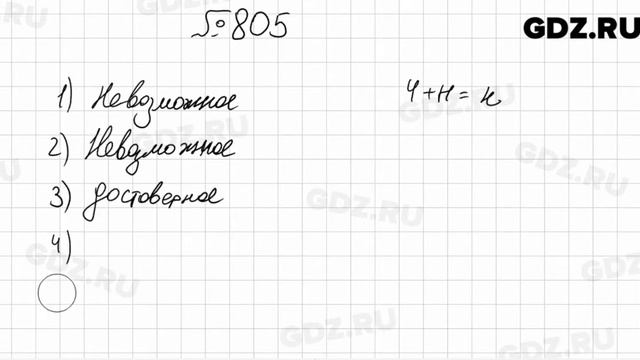 GDZ.RU
№ 805
1) Невозможное
4+Н = н
2) Невозможное
3) Достоверное
4)